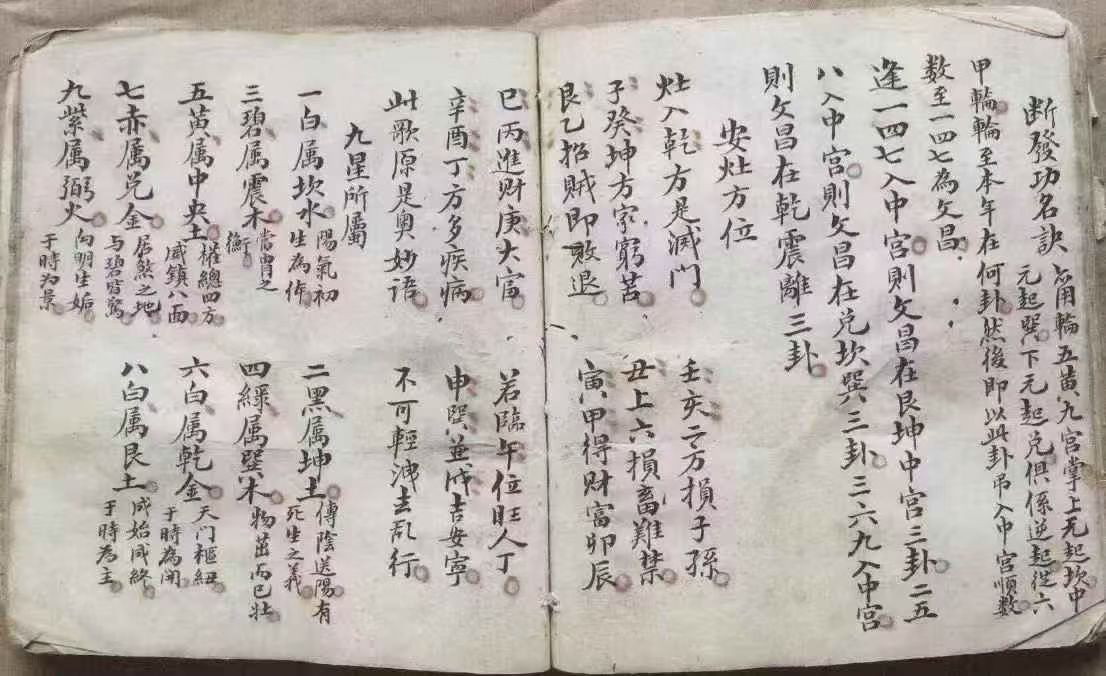 断發功名訣
用輪五黄九宫掌上元起坎中
元起巽下元起兑俱係逆起從六
甲輪輪至本年在何卦然後即以此卦吊入中宫順数
数至一四七為文昌
逢一四七入中宫則文昌在艮坤中宫三卦二五
八入中宫則文昌在兑坎巽三卦三六九入中宫
則文昌在乾震離三卦
安灶方位
灶入乾方是滅門 壬亥二方損子孫
子癸坤方家窮苦 丑上六損畜難禁
艮乙招賊即敗退 寅甲得财富卯辰
巳丙進财庚大富 若臨午位旺人丁
辛酉丁方多疾病 申巽並戌吉安寧
此歌原是奥妙語 不可輕洩去乱行
九星所屬
一白属坎水 陽氣初
生為作
二黑属坤土 傳陰送陽有
死生之義
三碧属震木 當胃之
衡
四緑属巽木 物出丙已壮
五黄属中央土 權總四方
威鎮八面
六白属乾金 天門樞紐
于時為開
七赤属兑金 居煞之地
與碧皆驚
八白属艮土 成始成終
于時為主
九紫属弼火 向明生姤
于時为景